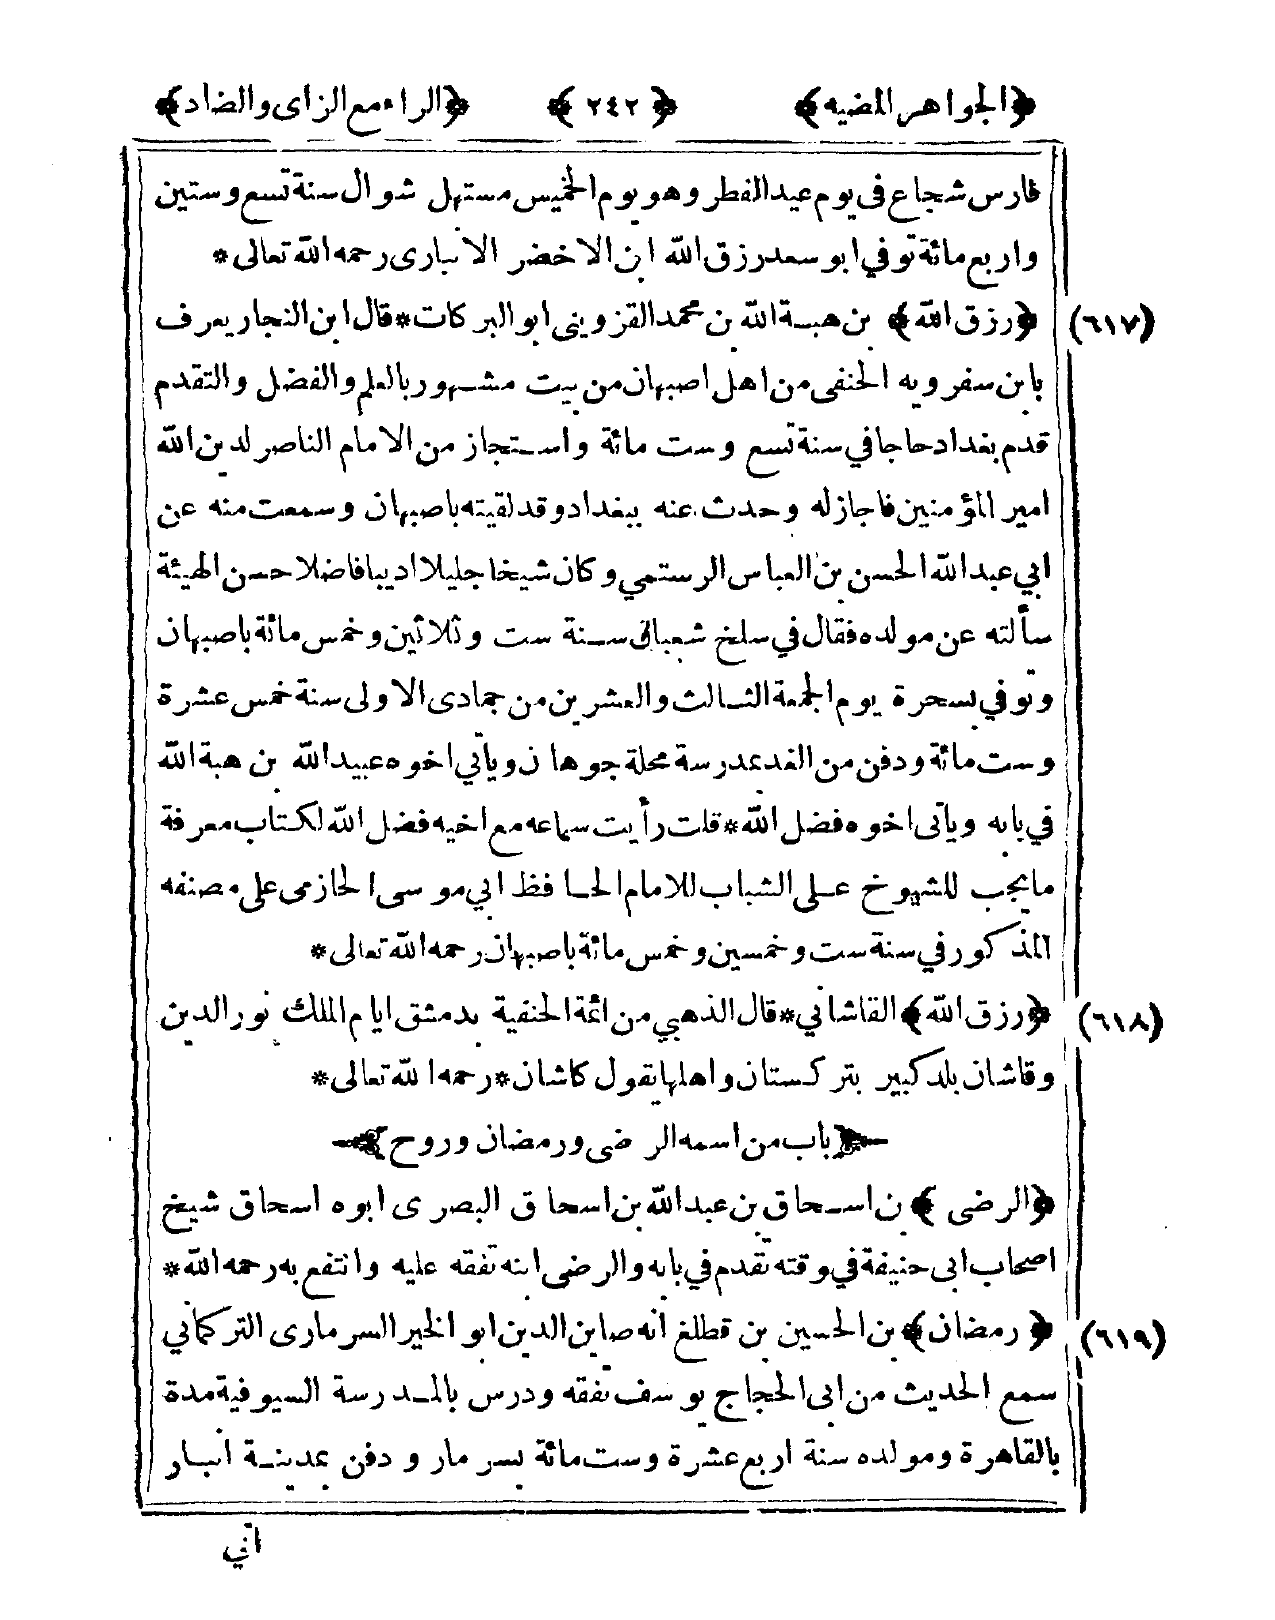 ﴿الجواهر المضيه﴾ ﴿٢٤٢﴾ ﴿الراء مع الزاى والضاد﴾
فارس شجاع فى يوم عيد الفطر وهو يوم الخميس مستهل شوال سنة تسع وستين
واربع مائة توفي ابو سعد رزق الله ابن الاخضر الانبارى رحمه الله تعالى*
(٦١٧) ﴿رزق الله﴾ بن هبة الله بن محمد القزوينى ابو البركات*قال ابن النجار يعرف
بابن سفرويه الحنفى من اهل اصبهان من بيت مشهور بالعلم والفضل والتقدم
قدم بغداد حاجا في سنة تسع وست مائة واستجاز من الامام الناصر لدين الله
امير المؤمنين فاجاز له وحدث عنه ببغداد وقد لقيته باصبهان وسمعت منه عن
ابي عبد الله الحسن بن العباس الرستمي وكان شيخا جليلا اديبا فاضلا حسن الهيئة
سألته عن مولده فقال في سلخ شعبان سنة ست وثلاثين وخمس مائة باصبهان
وتوفي بسحرة يوم الجمعة الثالث والعشرين من جمادى الاولى سنة خمس عشرة
وست مائة ودفن من الغد بمدرسة محلة جوهان ويأتي اخوه عبيد الله بن هبة الله
في بابه ويأتى اخوه فضل الله*قلت رأيت سماعه مع اخيه فضل الله لكتاب معرفة
ما يجب للشيوخ على الشباب للامام الحافظ ابي موسى الحازمى على مصنفه
المذكور في سنة ست وخمسين وخمس مائة باصبهان رحمه الله تعالى*
(٦١٨) ﴿رزق الله﴾ القاشاني*قال الذهبي من ائمة الحنفية بدمشق ايام الملك نور الدين
وقاشان بلد كبير بتركستان واهلها يقول كاشان*رحمه الله تعالى*
﴿باب من اسمه الرضى ورمضان وروح﴾
﴿الرضى﴾ بن اسحاق بن عبد الله بن اسحاق البصرى ابوه اسحاق شيخ
اصحاب ابى حنيفة في وقته تقدم في بابه والرضى ابنه تفقه عليه وانتفع به رحمه الله*
(٦١٩) ﴿رمضان﴾ بن الحسين بن قطلغ انه صاين الدين ابو الخير السرمارى التركماني
سمع الحديث من ابى الحجاج يوسف تفقه ودرس بالمدرسة السيوفية مدة
بالقاهرة ومولده سنة اربع عشرة وست مائة بسرمار ودفن بمدينة انبار